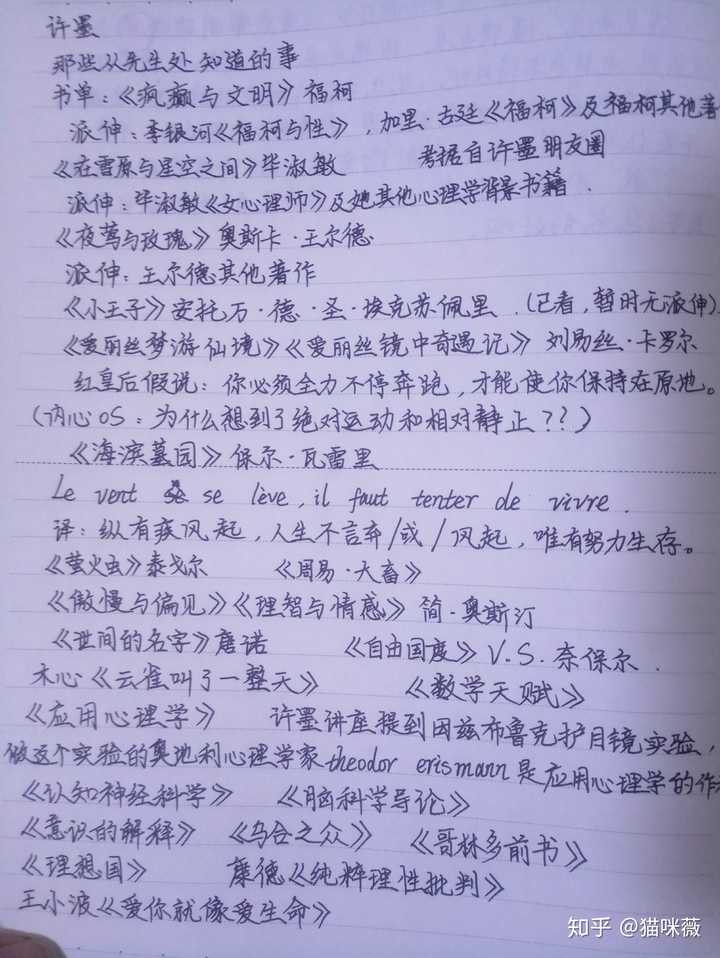 许墨
那些从先生处知道的事
书单:《疯癫与文明》福柯
派伸:李银河《福柯与性》,加里·古廷《福柯》及福柯其他著
《在雪原与星空之间》毕淑敏 考据自许墨朋友圈
派伸:毕淑敏《女心理师》及她其他心理学背景书籍.
《夜莺与玫瑰》奥斯卡·王尔德
派伸:王尔德其他著作
《小王子》安托万·德·圣·埃克苏佩里.(已看,暂时无派伸)
《爱丽丝梦游仙境》《爱丽丝镜中奇遇记》刘易丝·卡罗尔
红皇后假说:你必须全力不停奔跑,才能使你保持在原地。
(内心OS:为什么想到了绝对运动和相对静止??)
《海滨墓园》保尔·瓦雷里
Le vent se lève, il faut tenter de vivre.
译:纵有疾风起,人生不言弃/或/风起,唯有努力生存。
《萤火虫》泰戈尔 《周易·大畜》
《傲慢与偏见》《理智与情感》简·奥斯汀
《世间的名字》唐诺 《自由国度》V.S.奈保尔.
木心《云雀叫了一整天》 《数学天赋》
《应用心理学》 许墨讲座提到因兹布鲁克护目镜实验,
做这个实验的奥地利心理学家theodor erismann是应用心理学的作
《认知神经科学》 《脑科学导论》
《意识的解释》 《乌合之众》 《哥林多前书》
《理想国》 康德《纯粹理性批判》
王小波《爱你就像爱生命》
知乎 @猫咪薇